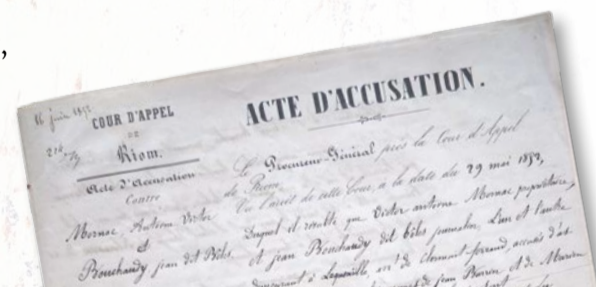 ,
16 juin 1852
COUR D'APPEL
DE
Riom.
Acte D'Accusation
Contre
Mornac, Antoine Victor
et
Bouchaudy jean dit Bibs,
ACTE D'ACCUSATION.
Le Procureur-Général près la Cour d'Appel
de Riom,
Vu l'arrêt de cette Cour, à la date du 29 mai 1852,
Duquel il résulte que Victor antoine Mornac propriétaire,
et jean Bouchaudy dit bibs journalier, L'un et l'autre
demeurant à arr.t de Clermont-ferrand, accusés d'as
de jean et de